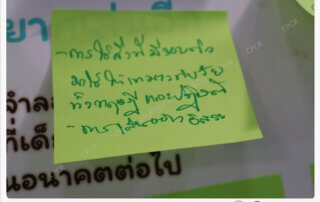 - การใช้สิ่งที่มีรอบตัว
มาใช้ให้เหมาะสมกับวัย
ทั้งทฤษฎี และปฏิบัติ
- การเล่นอย่างอิสระ
จำล
ที่เด็
นอนาคตต่อไป
CPCR